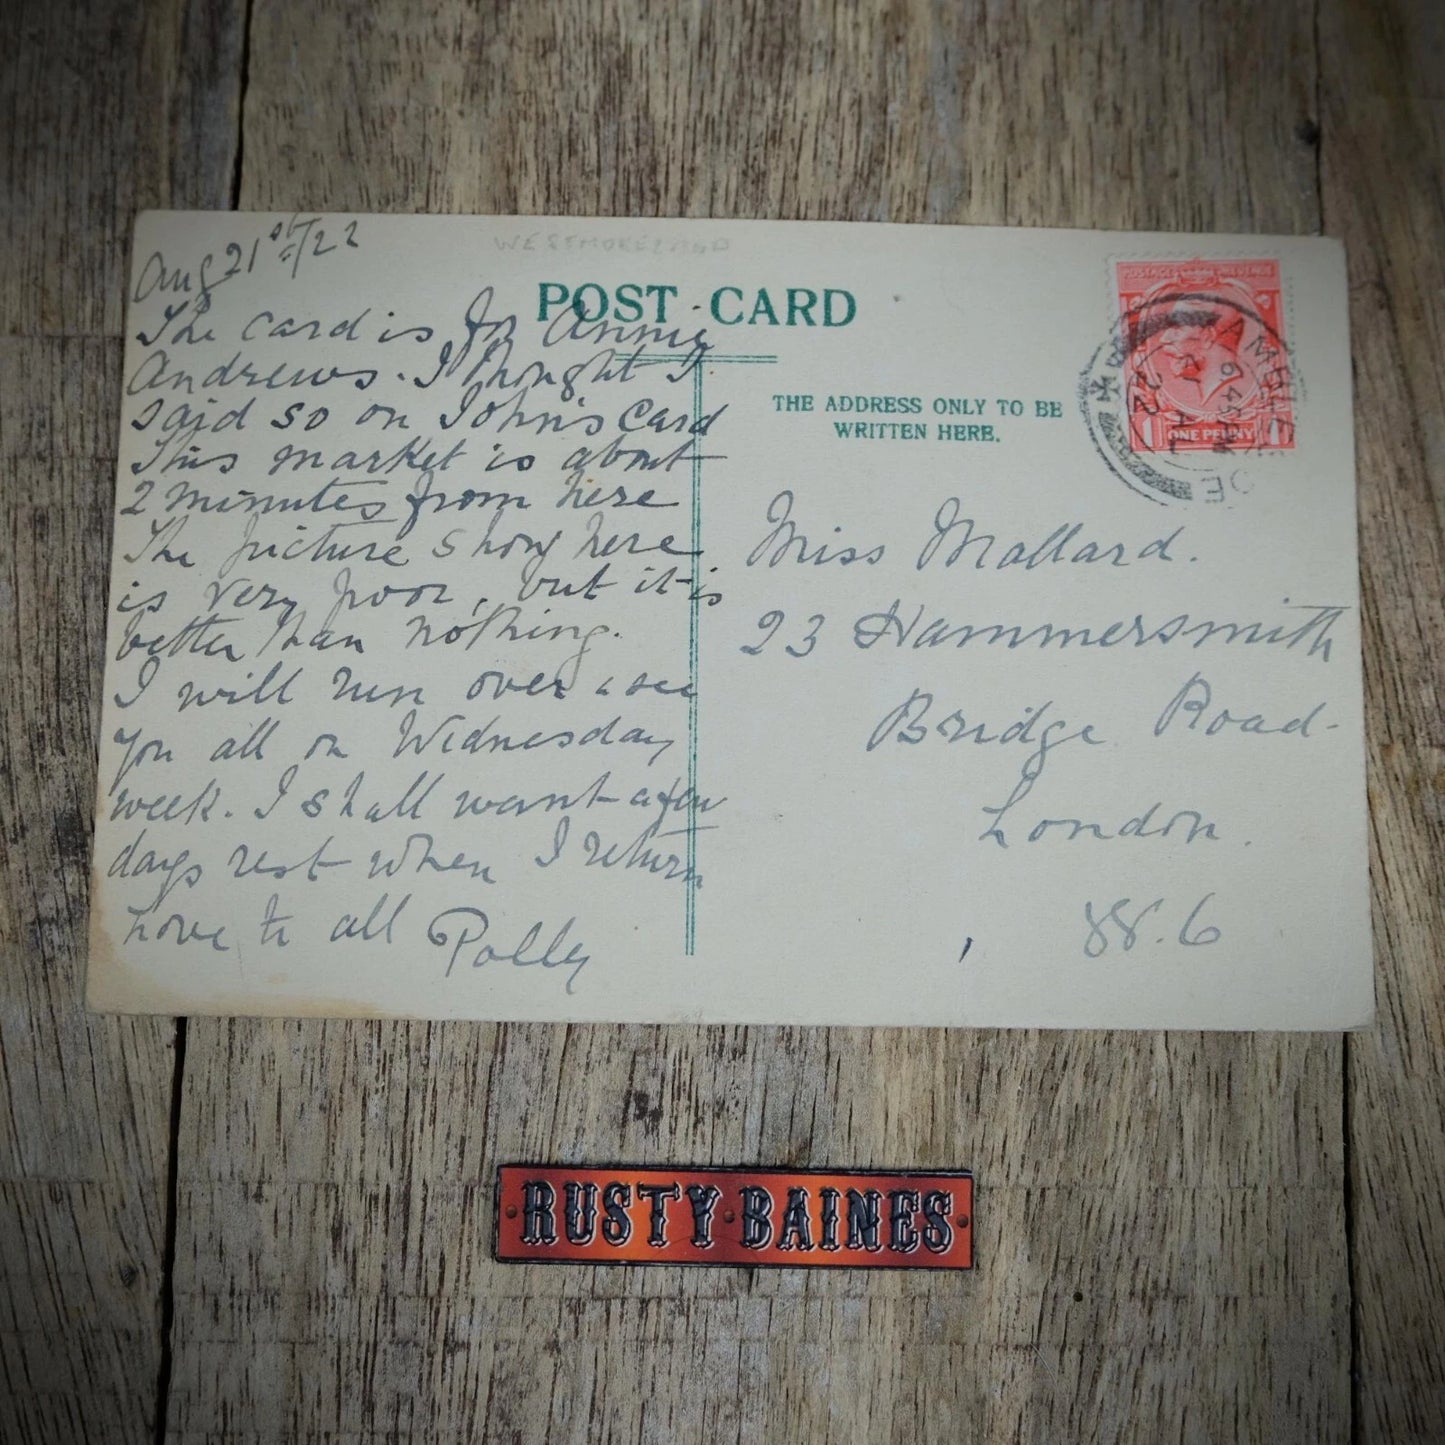 Aug 21st/22
WESTMORELAND
POST CARD
The card is for Annie
Andrews. I thought I
said so on John's card
This market is about
2 minutes from here
The picture shony here
is very poor, but it is
better than nothing.
I will run over & see
you all on Wednesday
week. I shall want a few
days rest when I return
Love to all Polly
THE ADDRESS ONLY TO BE
WRITTEN HERE.
POSTAGE REVENUE
ONE PENNY
1 1
AMBLE
6 45 PM
21 AU
22
Miss Mallard.
23 Hammersmith
Bridge Road
London.
88.6
RUSTY BAINES